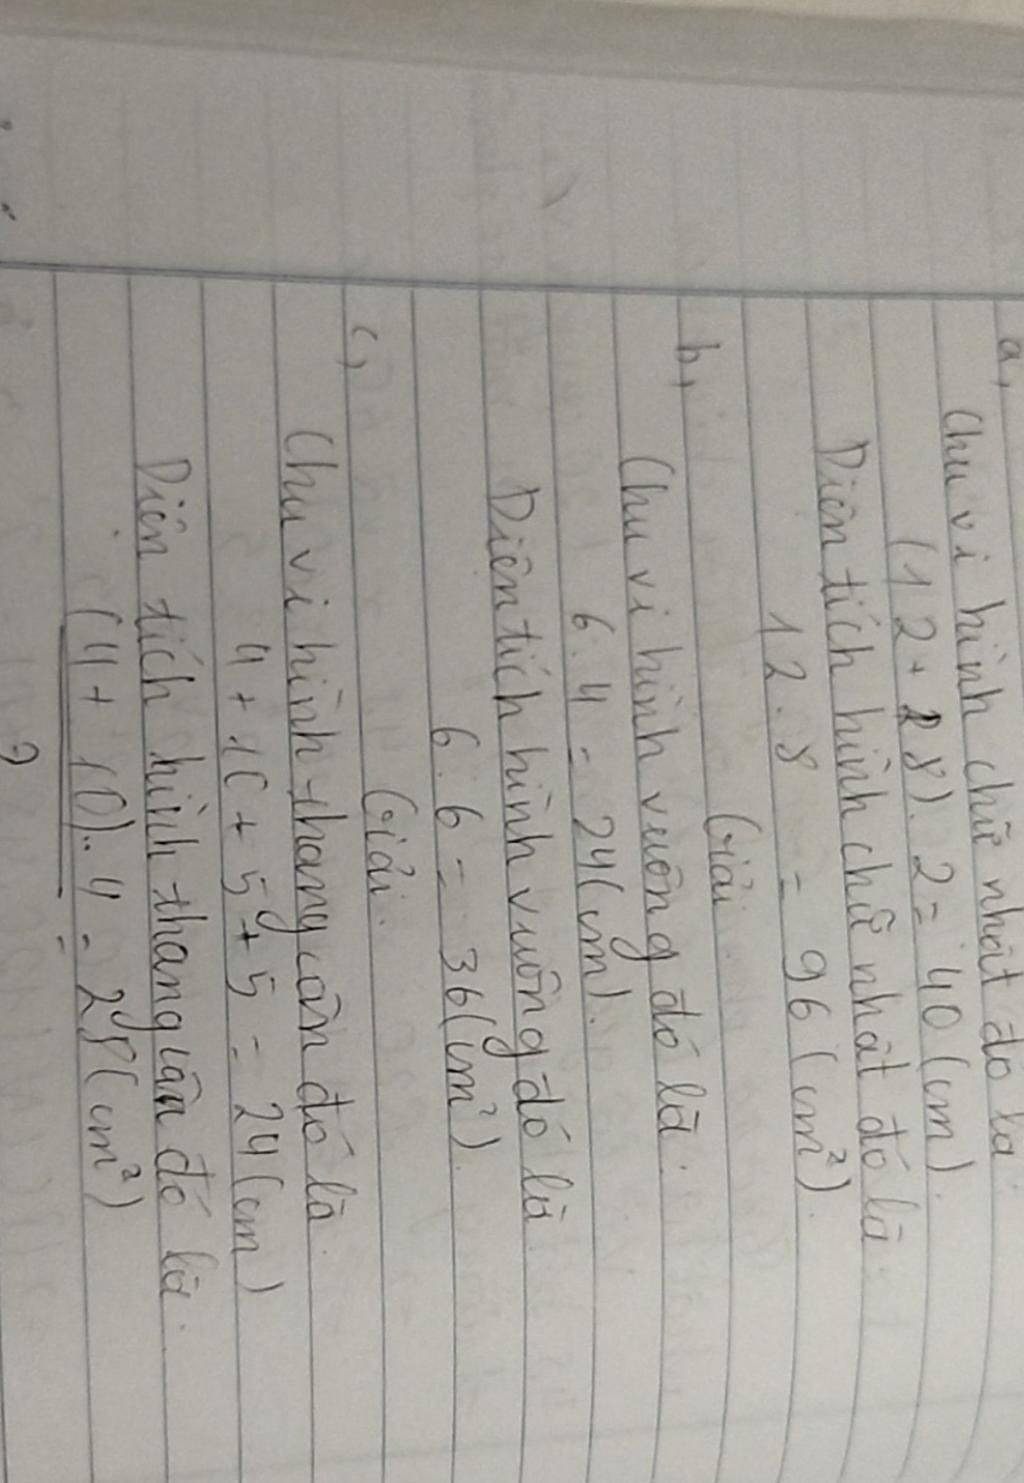 a,
Chu vi hình chữ nhật đó là:
(12 + 8). 2 = 40 (cm).
Diện tích hình chữ nhật đó là:
12.8 = 96 (cm²).
Giải.
b,
Chu vi hình vuông đó là:
6.4 = 24 (cm).
Diện tích hình vuông đó là
6.6 = 36 (cm²).
Giải.
c,
Chu vi hình thang cân đó là.
4 + 10 + 5 + 5 = 24 (cm)
Diện tích hình thang cân đó là.
(4 + 10). 4 = 28 (cm²)
2